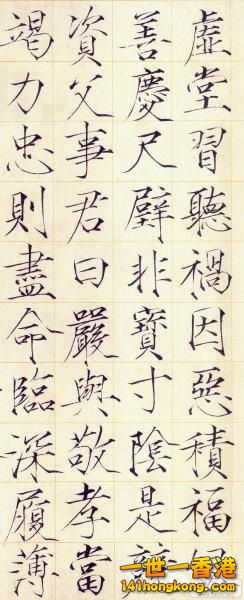 虛堂習聽禍因惡積福
善慶尺璧非寶寸陰是
資父事君曰嚴與敬孝當
竭力忠則盡命臨深履薄
一世一香港
141hongkong.com